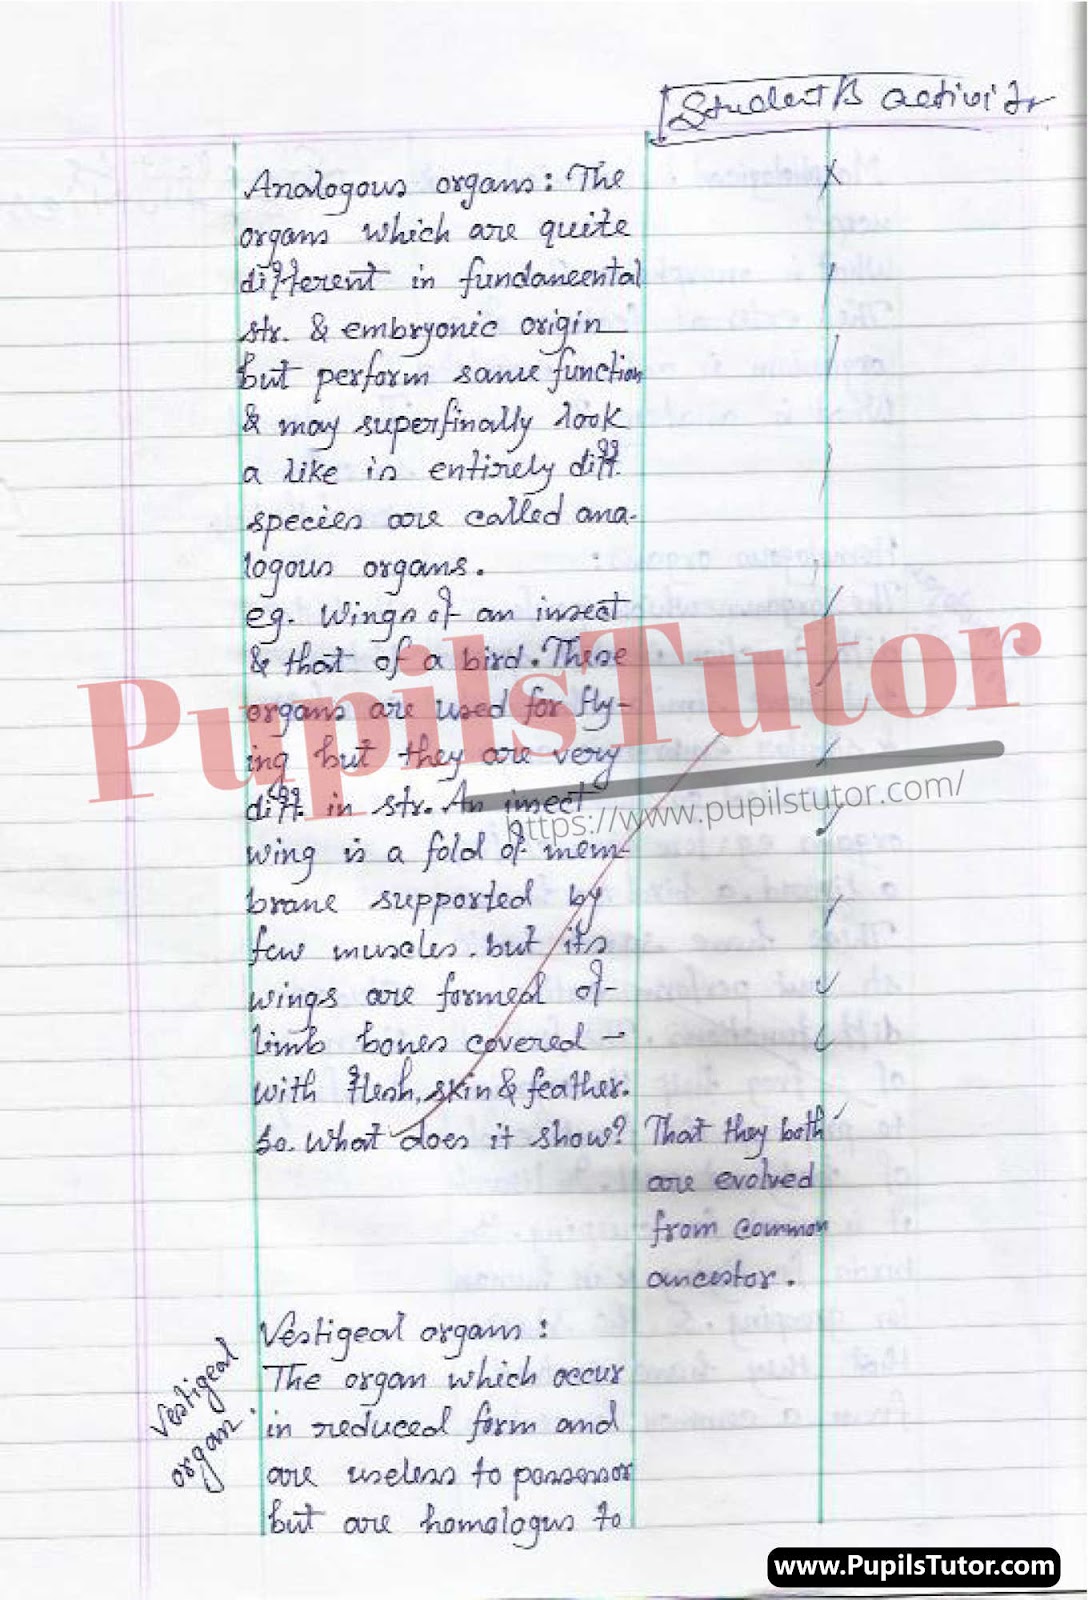 Student's activity
Analogous organs: The
organs which are quite
different in fundamental
str. & embryonic origin
but perform same function
& may superfinally look
a like in entirely diff.
species are called ana-
logous organs.
eg. Wings of an insect
& that of a bird. These
organs are used for fly-
ing but they are very
diff. in str. An insect
wing is a fold of mem-
brane supported by
few muscles. but its
wings are formed of
limb bones covered -
with flesh, skin & feather.
So. What does it show? That they both
are evolved
from common
ancestor.
Vestigeal organs:
The organ which occur
in reduced form and
are useless to possessor
but are homologus to
Vestigeal
organ.
PupilsTutor
https://www.pupilstutor.com/
www.PupilsTutor.com